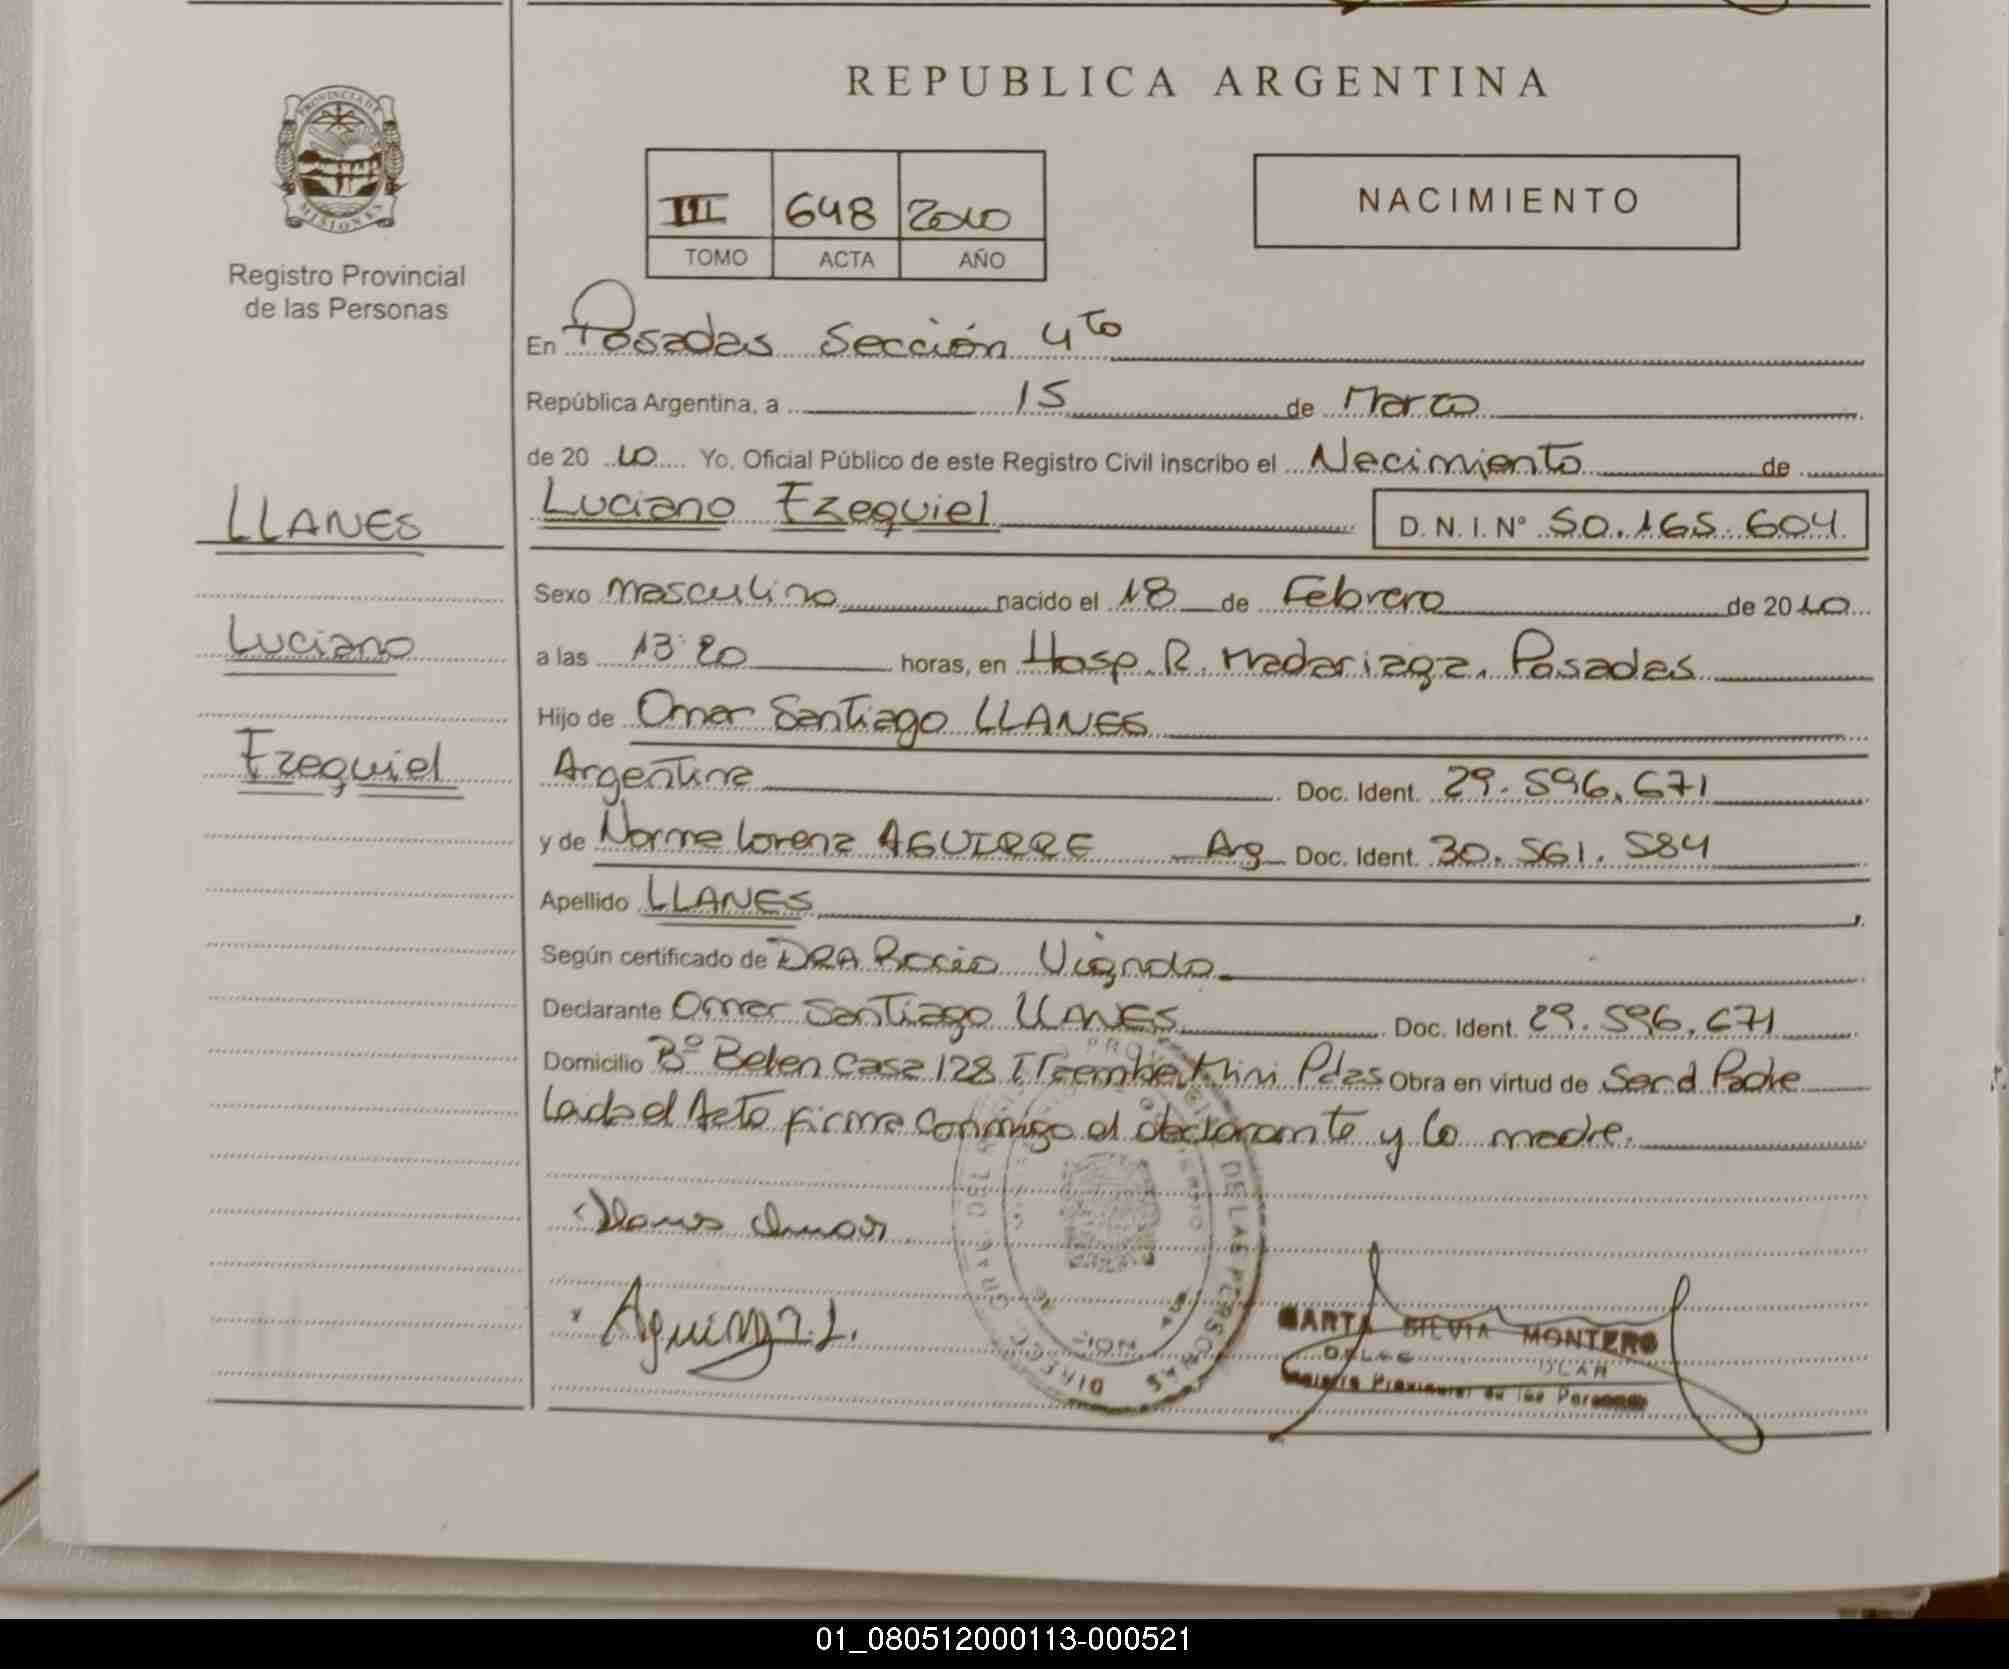 REPUBLICA ARGENTINA
PROVINCIA DE
MISIONES
Registro Provincial
de las Personas
III 648 2010
TOMO ACTA AÑO
NACIMIENTO
En Posadas Sección 4to
República Argentina, a 15 de Marzo
de 2010 Yo, Oficial Público de este Registro Civil inscribo el Nacimiento de
Luciano Ezequiel D. N. I. N° 50.165.604
LLANES
Luciano
Ezequiel
Sexo masculino nacido el 18 de Febrero de 2010
a las 13:20 horas, en Hosp. R. Madariaga. Posadas
Hijo de Omar Santiago LLANES
Argentina Doc. Ident. 29.596.671
y de Norma Lorena AGUIRRE Arg Doc. Ident. 30.561.584
Apellido LLANES
Según certificado de DRA Rocio
Declarante Omar Santiago LLANES Doc. Ident. 29.596.671
Domicilio Bº Belen Casa 128 Itaembe Mini Pdas Obra en virtud de Ser el Padre
Leida el Acta firma conmigo el declarante y la madre.
Llanes Omar
MARTA SILVIA MONTERO
DE LAS PERSONAS
01_080512000113-000521